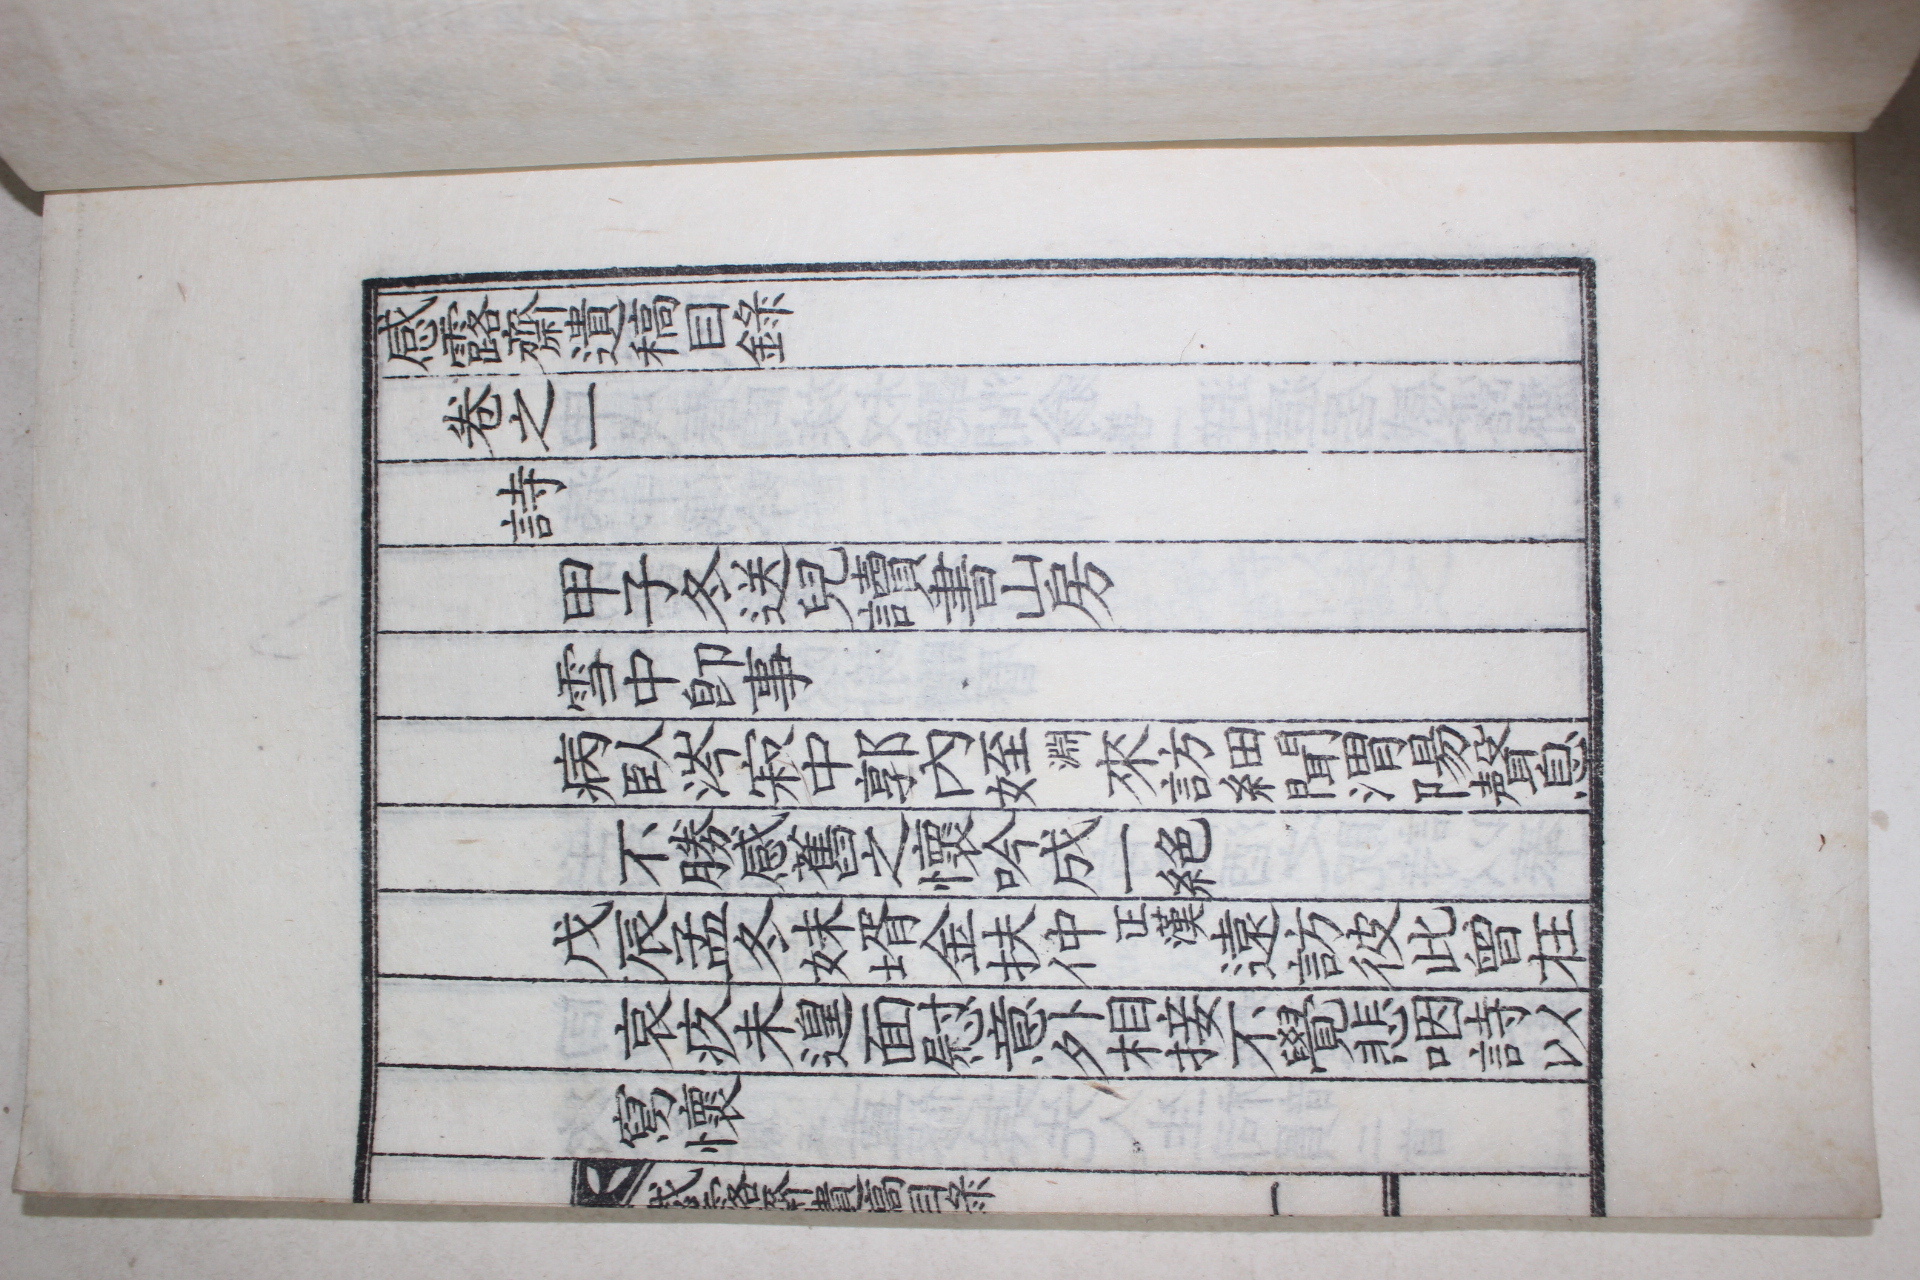 感露齋遺稿目錄
卷之一
詩
甲子冬送兒讀書山房
雪中卽事
病臥涔寂中郭內姪淵來訪細聞渭陽聲息
不勝感舊之懷吟成一絕
戊辰孟冬妹壻金扶仲正漢遠訪彼此曾在
哀疚未遑面慰意外相接不覺悲咽詩以
寫懷
感露齋遺稿目錄 一